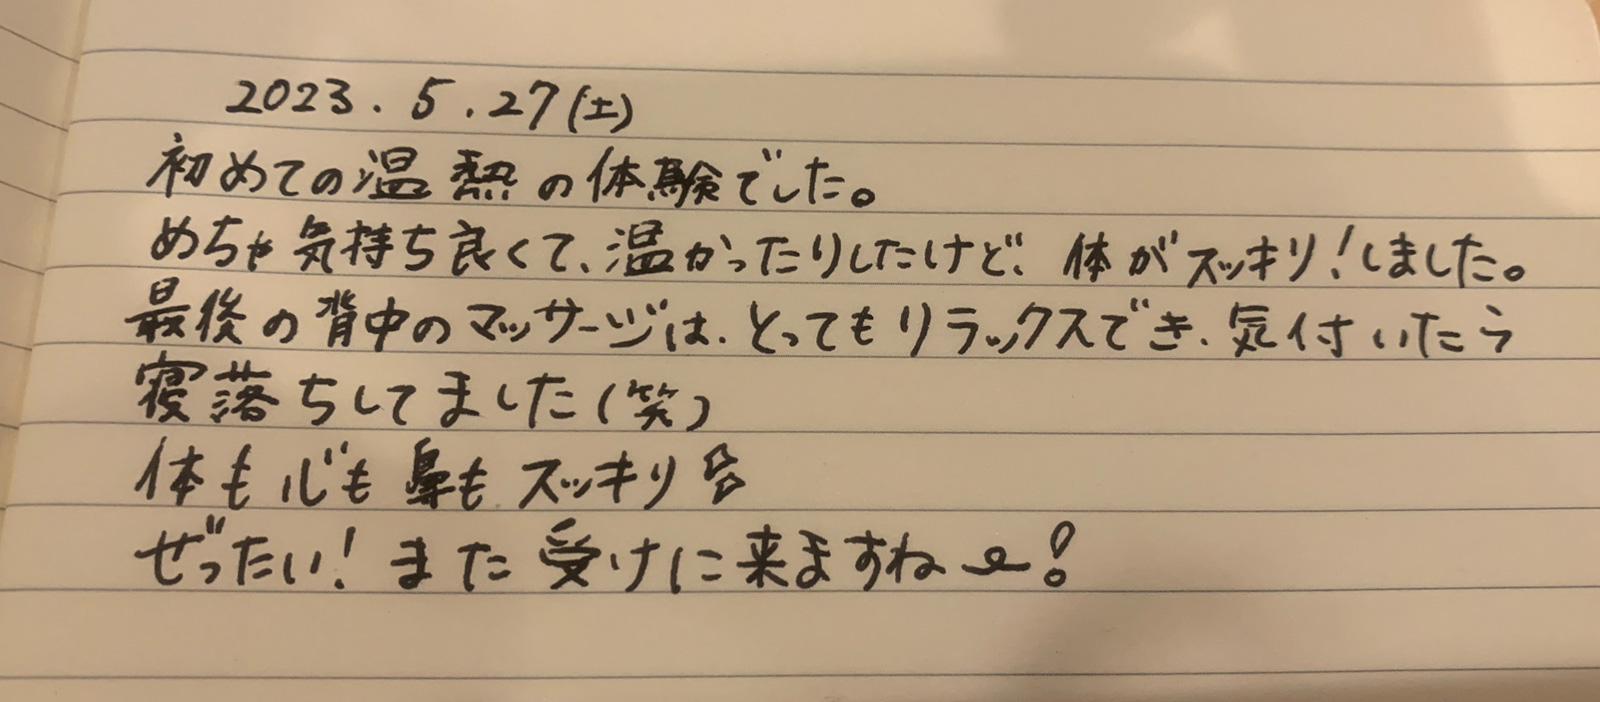 2023.5.27(土)
初めての温熱の体験でした。
めちゃ気持ち良くて、温かったりしたけど、体がスッキリ!しました。
最後の背中のマッサージは、とってもリラックスでき、気付いたら
寝落ちしてました(笑)
体も心も鼻もスッキリ☆
ぜったい!また受けに来ますね〜!